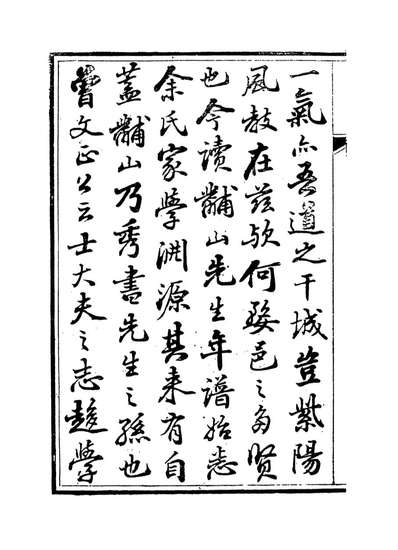 一氣亦吾道之干城豈紫陽
風教在茲歟何婺邑之多賢
也今讀黼山先生年譜始悉
余氏家學淵源其来有自
蓋黼山乃秀書先生之孫也
曾文正公云士大夫之志趣學